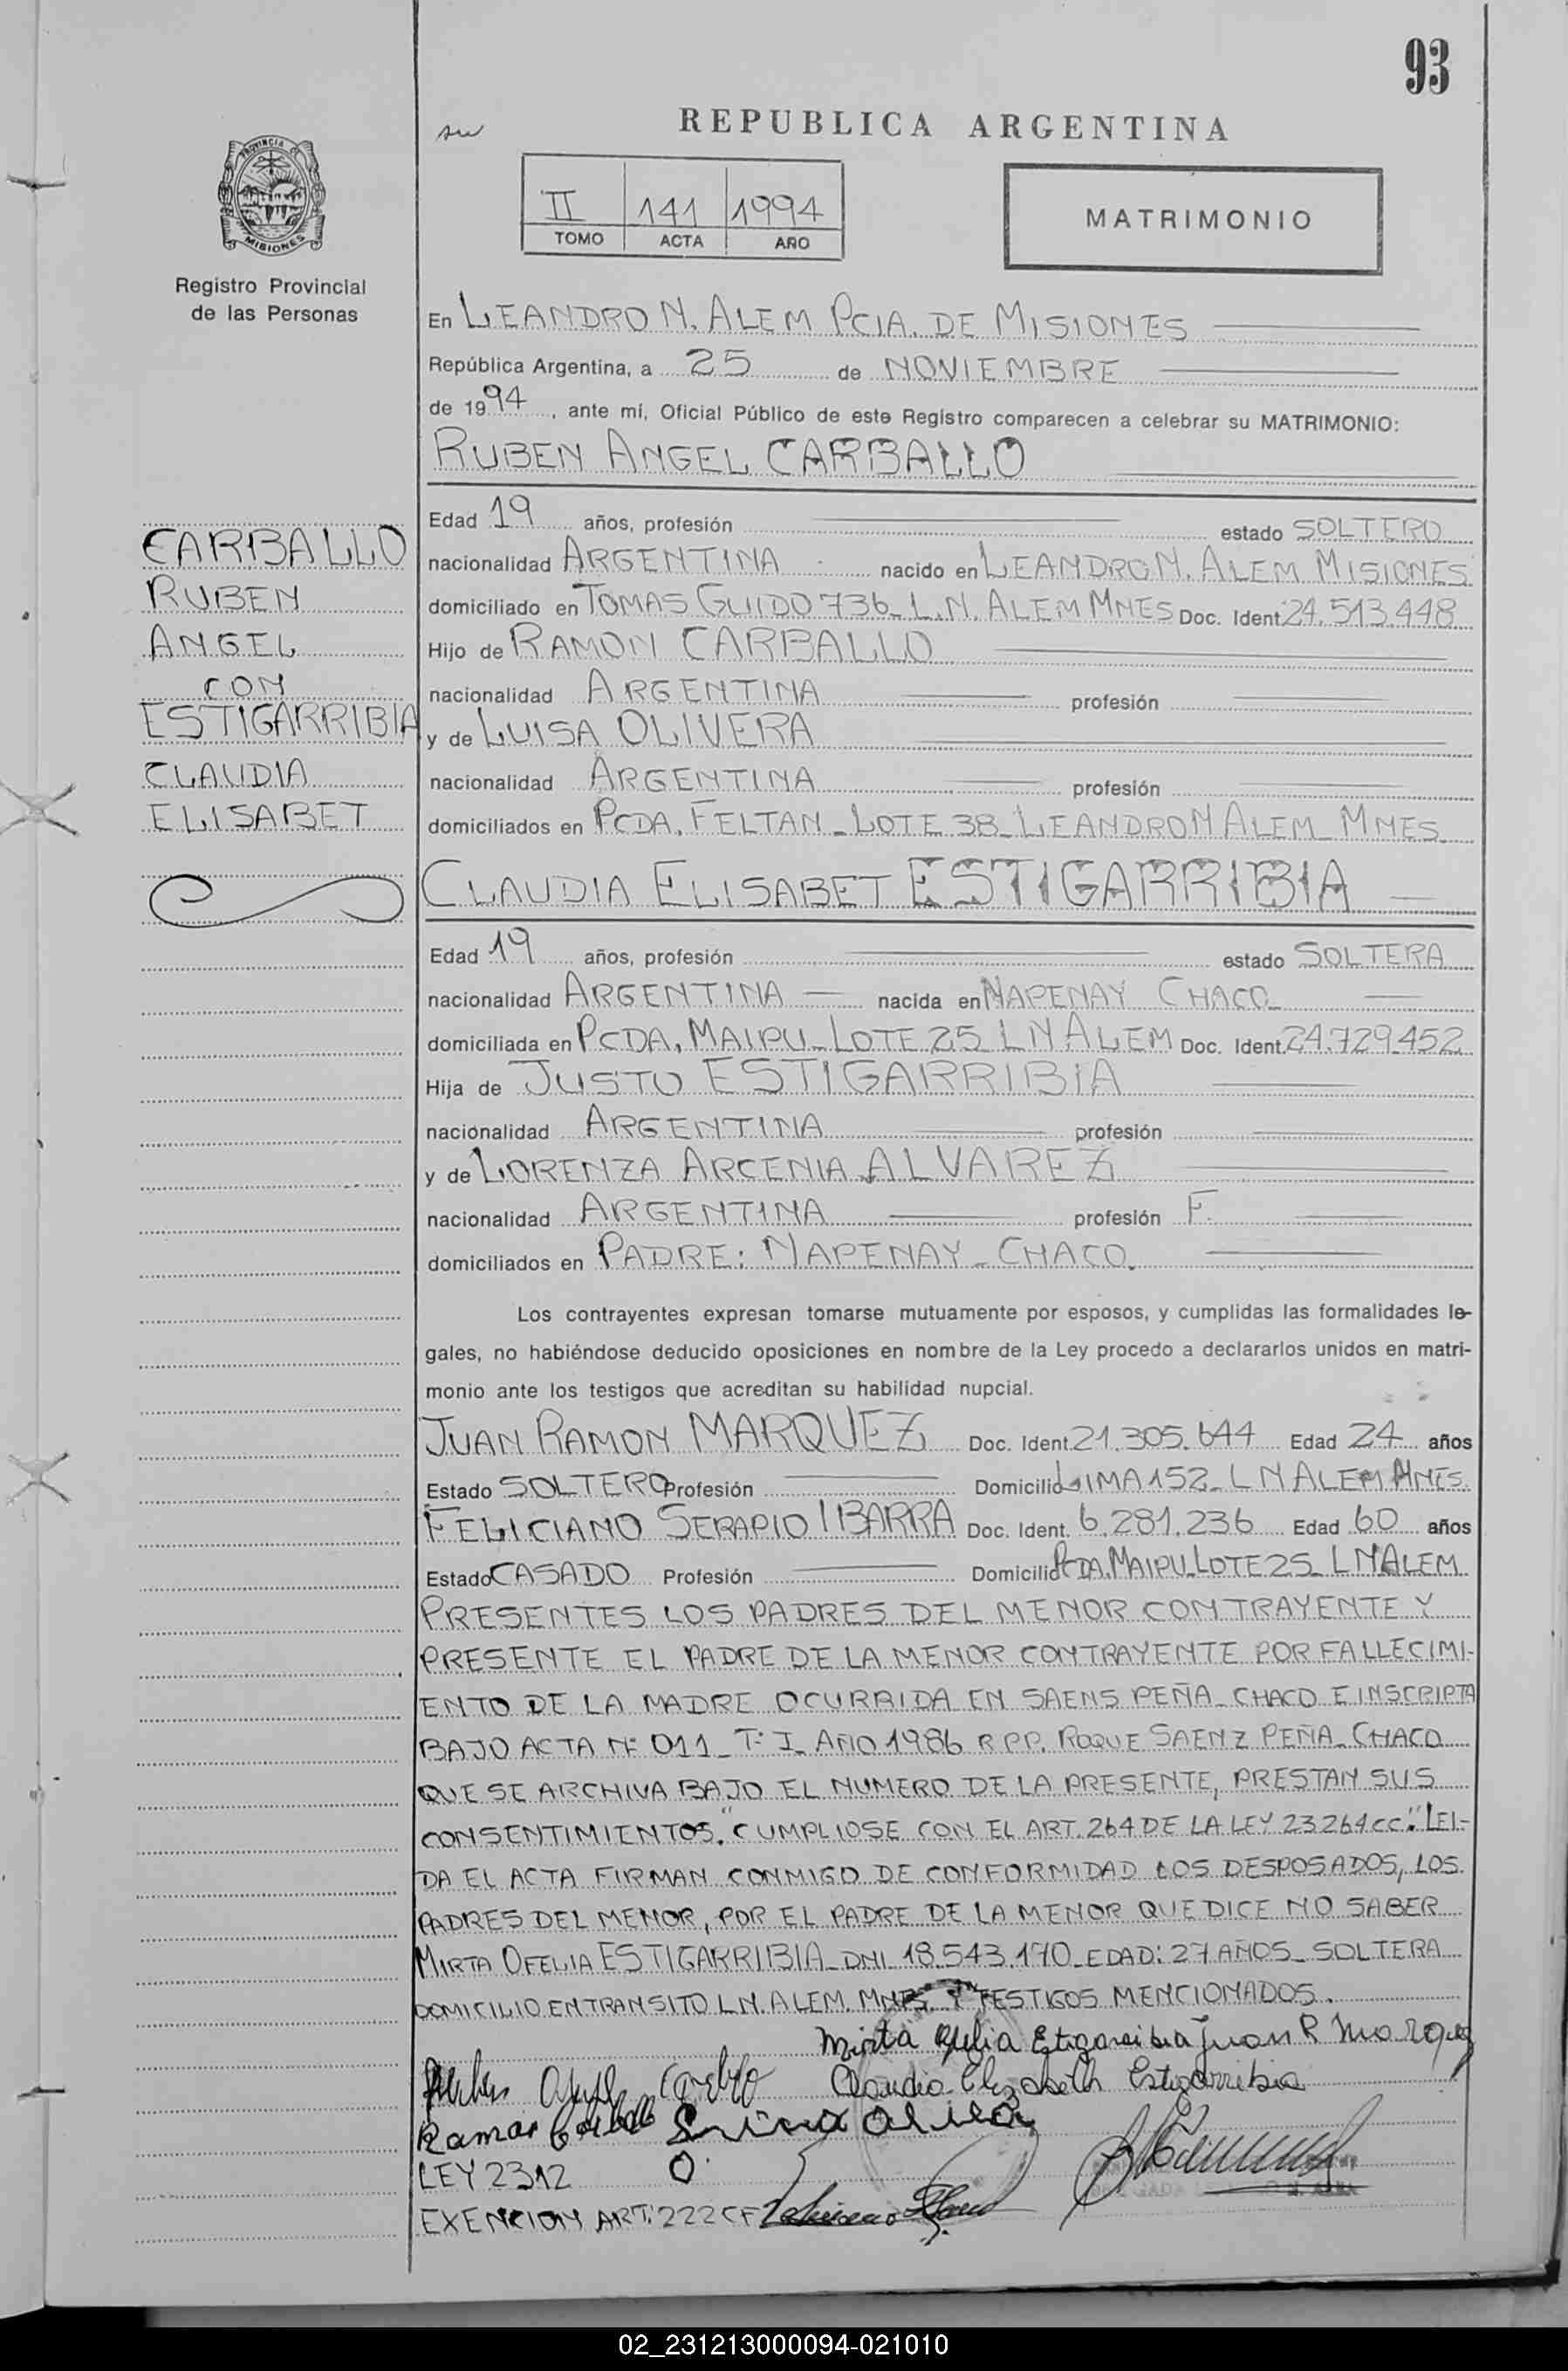 93
su
REPUBLICA ARGENTINA
PROVINCIA DE
MISIONES
Registro Provincial
de las Personas
II 141 1994
TOMO ACTA AÑO
MATRIMONIO
En LEANDRO N. ALEM PCIA. DE MISIONES
República Argentina, a 25 de NOVIEMBRE
de 1994, ante mí, Oficial Público de este Registro comparecen a celebrar su MATRIMONIO:
RUBEN ANGEL CARBALLO
CARBALLO
RUBEN
ANGEL
CON
ESTIGARRIBIA
CLAUDIA
ELISABET
Edad 19 años, profesión estado SOLTERO
nacionalidad ARGENTINA nacido en LEANDRO N. ALEM MISIONES
domiciliado en TOMAS GUIDO 736_ L.N. ALEM MNES Doc. Ident. 24.513.448
Hijo de RAMON CARBALLO
nacionalidad ARGENTINA profesión
y de LUISA OLIVERA
nacionalidad ARGENTINA profesión
domiciliados en PCDA. FELTAN_ LOTE 38_ LEANDRO N ALEM_ MNES.
CLAUDIA ELISABET ESTIGARRIBIA
Edad 19 años, profesión estado SOLTERA
nacionalidad ARGENTINA nacida en NAPENAY CHACO_
domiciliada en PCDA. MAIPU_ LOTE 25_ L N ALEM Doc. Ident. 24.729.452
Hija de JUSTO ESTIGARRIBIA
nacionalidad ARGENTINA profesión
y de LORENZA ARCENIA ALVAREZ
nacionalidad ARGENTINA profesión F.
domiciliados en PADRE: NAPENAY_ CHACO.
Los contrayentes expresan tomarse mutuamente por esposos, y cumplidas las formalidades le-
gales, no habiéndose deducido oposiciones en nombre de la Ley procedo a declararlos unidos en matri-
monio ante los testigos que acreditan su habilidad nupcial.
JUAN RAMON MARQUEZ Doc. Ident. 21.305.644 Edad 24 años
Estado SOLTERO Profesión Domicilio LIMA 152_ L N ALEM MNES.
FELICIANO SERAPIO IBARRA Doc. Ident. 6.281.236 Edad 60 años
Estado CASADO Profesión Domicilio PCDA. MAIPU_ LOTE 25_ L N ALEM
PRESENTES LOS PADRES DEL MENOR CONTRAYENTE Y
PRESENTE EL PADRE DE LA MENOR CONTRAYENTE POR FALLECIMI-
ENTO DE LA MADRE OCURRIDA EN SAENS PEÑA_ CHACO E INSCRIPTA
BAJO ACTA Nº 011_ Tº I_ AÑO 1986 R.P.P. ROQUE SAENZ PEÑA_ CHACO
QUE SE ARCHIVA BAJO EL NUMERO DE LA PRESENTE, PRESTAN SUS
CONSENTIMIENTOS. "CUMPLIOSE CON EL ART. 264 DE LA LEY 23264 CC". LEI-
DA EL ACTA FIRMAN CONMIGO DE CONFORMIDAD LOS DESPOSADOS, LOS
PADRES DEL MENOR, POR EL PADRE DE LA MENOR QUE DICE NO SABER
MIRTA OFELIA ESTIGARRIBIA_ DNI_ 18.543.170_ EDAD: 27 AÑOS_ SOLTERA
DOMICILIO EN TRANSITO L.N. ALEM. MNES. Y TESTIGOS MENCIONADOS.
Mirta Ofelia Estigarribia Juan R Marquez
Claudia Elizabeth Estigarribia
LEY 2312
EXENCION ART: 222 CF
02_231213000094-021010